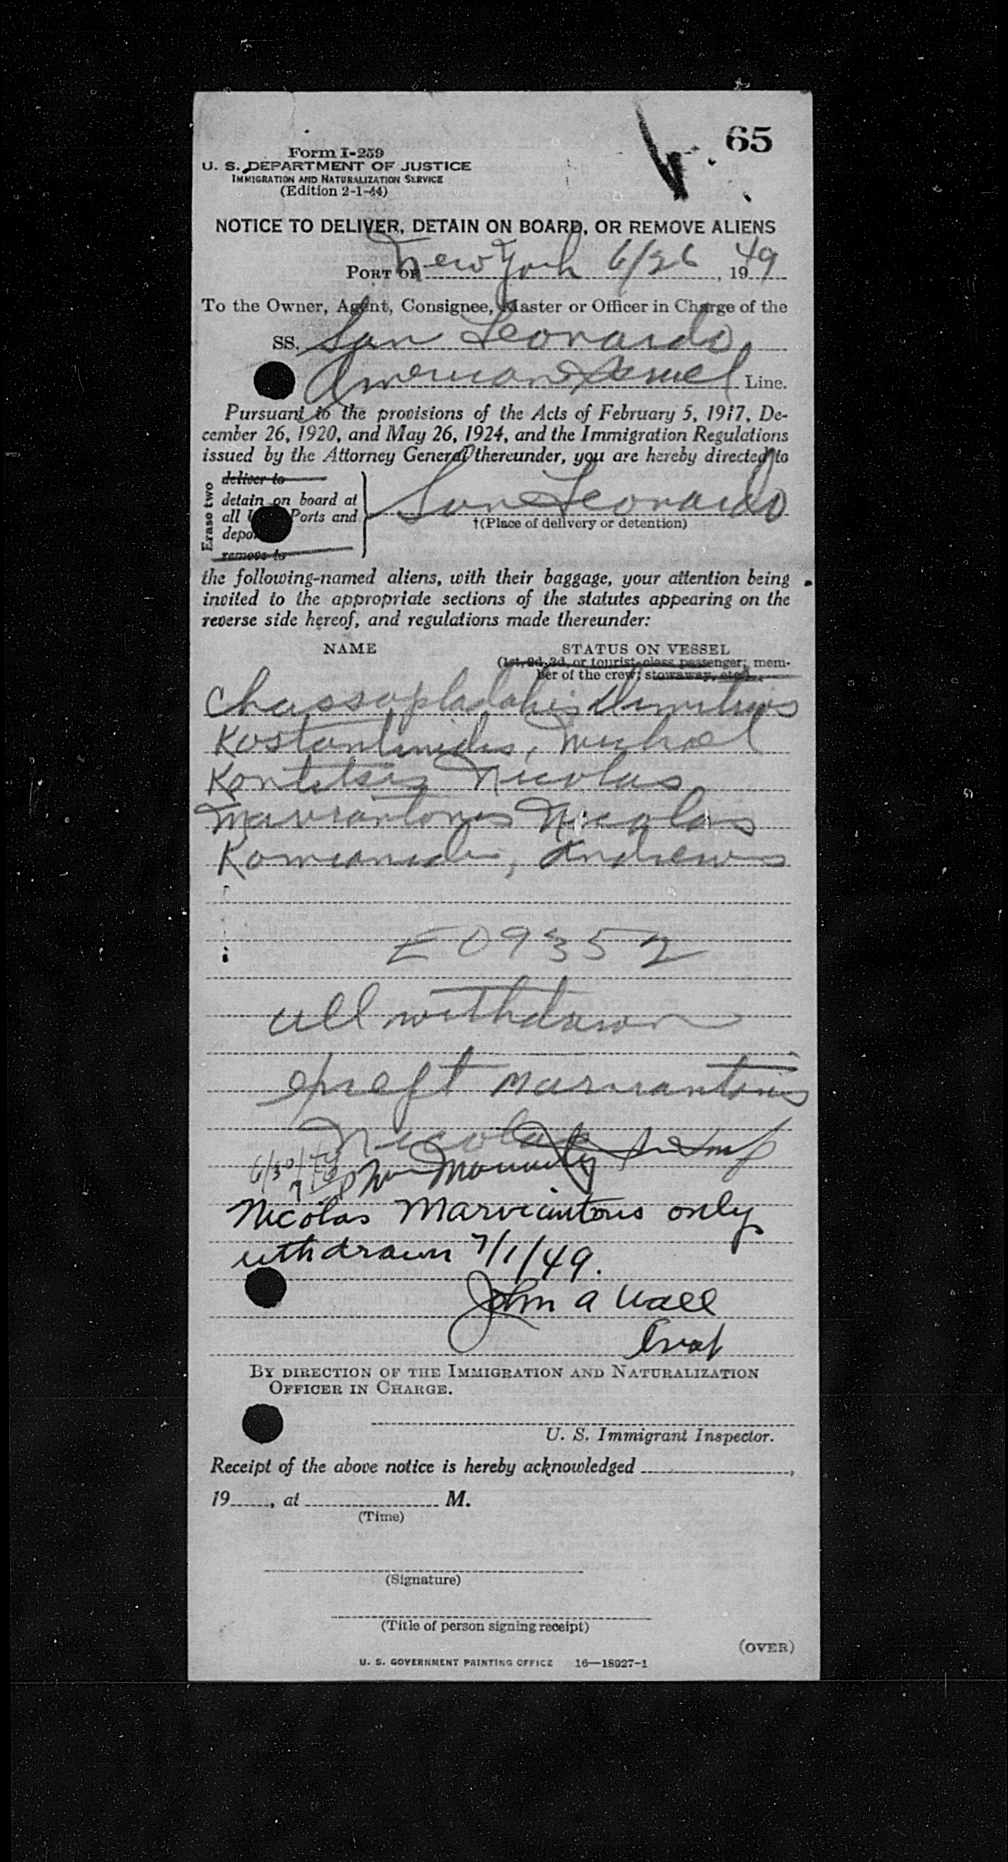 65
Form I-259
U. S. DEPARTMENT OF JUSTICE
IMMIGRATION AND NATURALIZATION SERVICE
(Edition 2-1-44)
NOTICE TO DELIVER, DETAIN ON BOARD, OR REMOVE ALIENS
PORT OF New York 6/26, 1949
To the Owner, Agent, Consignee, Master or Officer in Charge of the
SS. San Leonardo
American Israel Line.
Pursuant to the provisions of the Acts of February 5, 1917, De-
cember 26, 1920, and May 26, 1924, and the Immigration Regulations
issued by the Attorney General thereunder, you are hereby directed to
Erase two
deliver to
detain on board at
all Ports and
remove to
San Leonardo
†(Place of delivery or detention)
the following-named aliens, with their baggage, your attention being
invited to the appropriate sections of the statutes appearing on the
reverse side hereof, and regulations made thereunder:
NAME
STATUS ON VESSEL
(1st, 2d, 3d, or tourist-class passenger; mem-
ber of the crew; stowaway, etc.)
Dimitrios
Kostantinidis, Michael
Nicolas
Marviantonis Nicolas
Andrews
E 09352
all withdrawn
except Marviantonis
Nicolas
6/30/49
Nicolas Marviantonis only
withdrawn 7/1/49.
John A Wall
BY DIRECTION OF THE IMMIGRATION AND NATURALIZATION
OFFICER IN CHARGE.
U. S. Immigrant Inspector.
Receipt of the above notice is hereby acknowledged
19 , at M.
(Time)
(Signature)
(Title of person signing receipt)
(OVER)
U. S. GOVERNMENT PRINTING OFFICE 16—18927-1